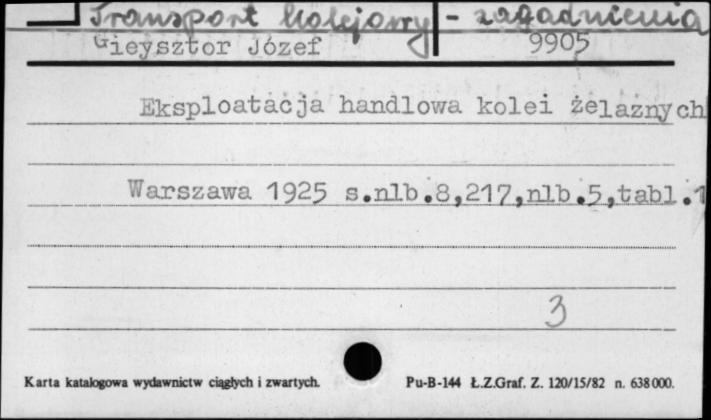 Transport kolejowy - zagadnienia
Gieysztor Józef 9905
Eksploatacja handlowa kolei żelaznych
Warszawa 1925 s.nlb.8,217,nlb.5,tabl.1
3
Karta katalogowa wydawnictw ciągłych i zwartych. Pu-B-144 Ł.Z.Graf. Z. 120/15/82 n. 638000.